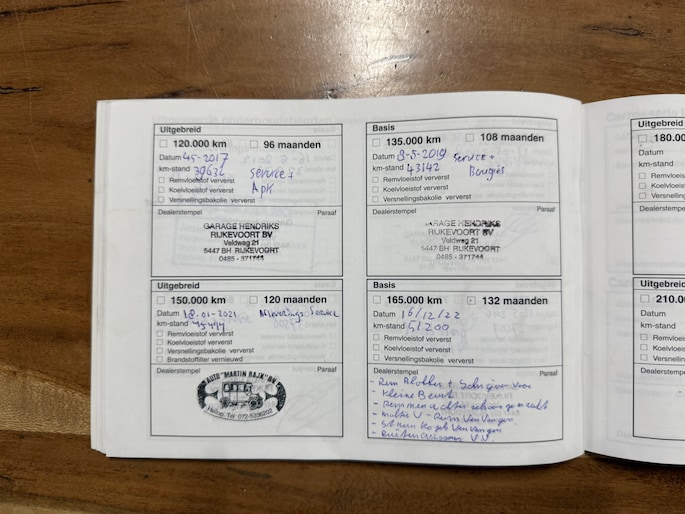 Uitgebreid
120.000 km
96 maanden
Datum 4-5-2017
km-stand 39632
service +
APK
Remvloeistof ververst
Koelvloeistof ververst
Versnellingsbakolie ververst
Dealerstempel
Paraaf
GARAGE HENDRIKS
RIJKEVOORT BV
Veldweg 21
5447 BH RIJKEVOORT
0485 - 371744
Basis
135.000 km
108 maanden
Datum 9-5-2019
km-stand 43142
service +
Bougies
Remvloeistof ververst
Koelvloeistof ververst
Versnellingsbakolie ververst
Dealerstempel
Paraaf
GARAGE HENDRIKS
RIJKEVOORT BV
Veldweg 21
5447 BH RIJKEVOORT
0485 - 371744
150.000 km
120 maanden
Datum 18-01-2021
km-stand
Afleverings Service
Remvloeistof ververst
Koelvloeistof ververst
Versnellingsbakolie ververst
Brandstoffilter vernieuwd
Dealerstempel
Paraaf
AUTO "MARTIN BAJK"
Heiloo, Tel. 072-5336202
Basis
165.000 km
132 maanden
Datum 16/12/22
km-stand 51200
Remvloeistof ververst
Koelvloeistof ververst
Versnellingsbakolie ververst
Dealerstempel
Paraaf
- Rem Blokken + Schijven voor
- Kleine Beurt
- Remmen achter schoon gemaakt
- V-Riem Vervangen
- Vervangen
- Ruitenwissers V.V
Uitgebreid
180.00
Datum
km-stand
Remvlo
Koelvlo
Versne
Dealerste
Uitgebreid
210.0
Datum
km-stand
Remv
Koelv
Vers
Dealerst